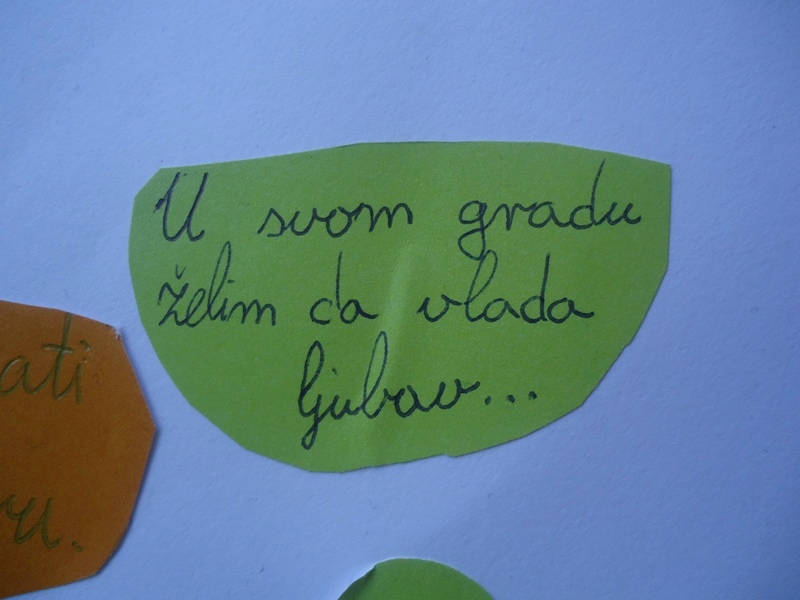 U svom gradu
želim da vlada
ljubav...